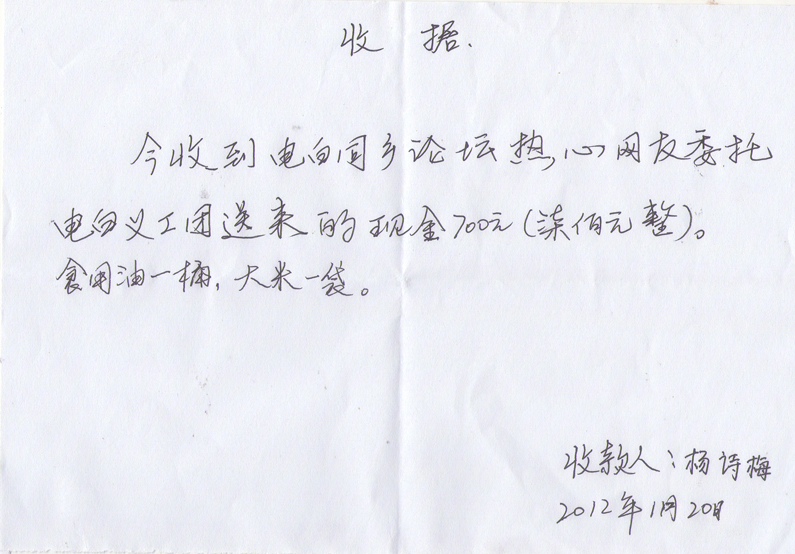 收 据.
今收到电白同乡论坛热心网友委托
电白义工团送来的现金700元(柒佰元整)。
食用油一桶,大米一袋。
收款人:杨诗梅
2012年1月20日